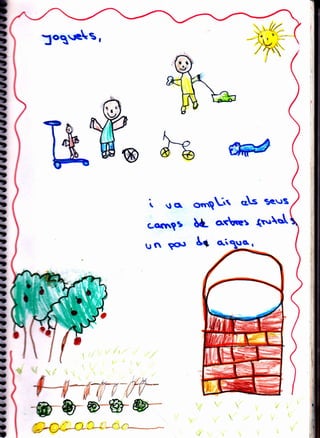 joguets,
i va omplir els seus
camps de arbres fruitals,
un pou de aigua,